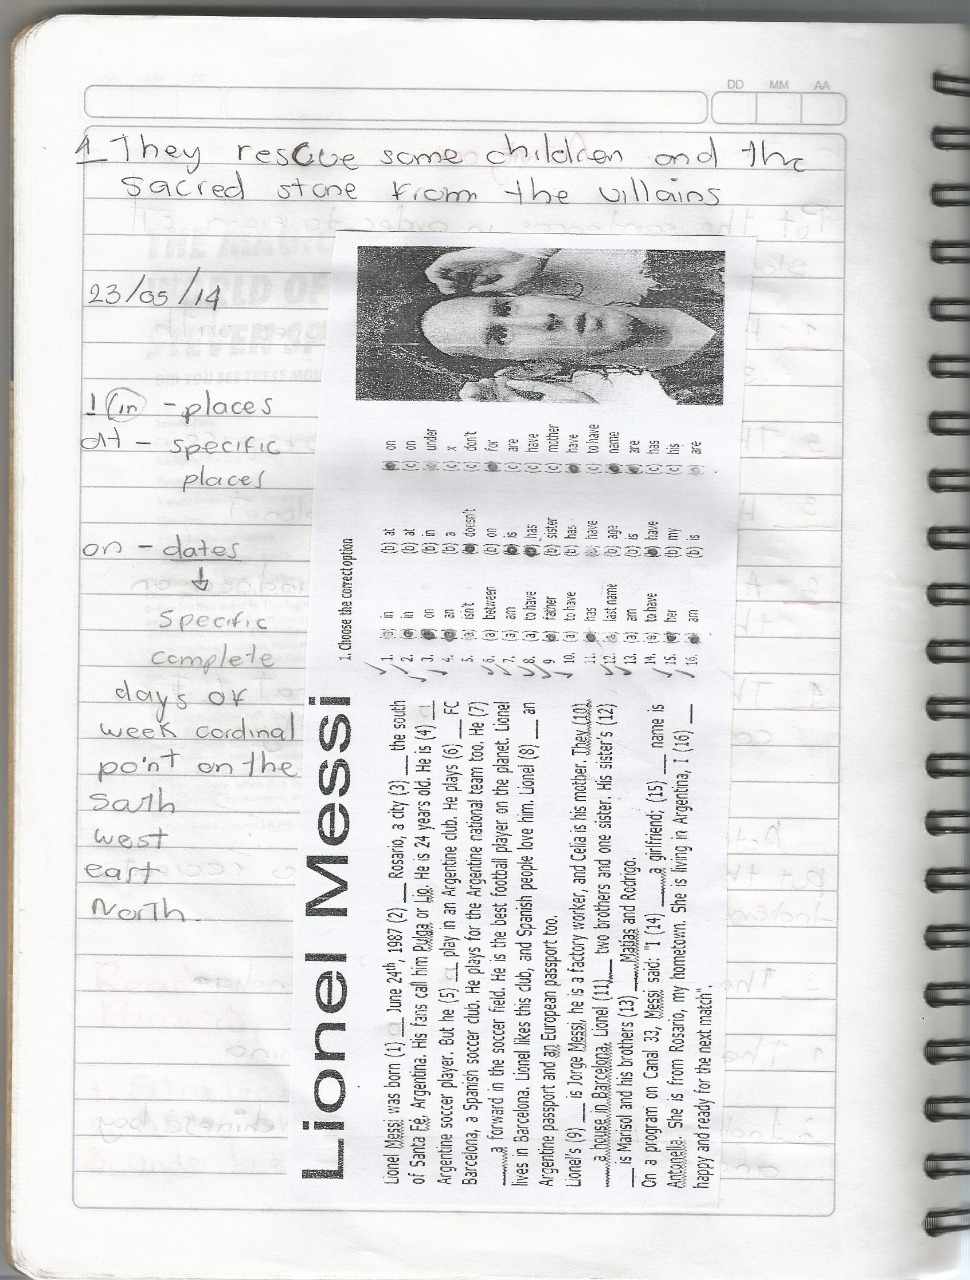 DD MM AA
1 They rescue some children and the
sacred stone from the villains
23/05/14
1 in - places
at - specific
places
on - dates
↓
specific
complete
days of
week cordinal
point on the
south
west
east
North.
Lionel Messi
Lionel Messi was born (1) ___ June 24th, 1987 (2) ___ Rosario, a city (3) ___ the south
of Santa Fé, Argentina. His fans call him Pulga or Lio. He is 24 years old. He is (4) ___
Argentine soccer player. But he (5) ___ play in an Argentine club. He plays (6) ___ FC
Barcelona, a Spanish soccer club. He plays for the Argentine national team too. He (7)
___ a forward in the soccer field. He is the best football player on the planet. Lionel
lives in Barcelona. Lionel likes this club, and Spanish people love him. Lionel (8) ___ an
Argentine passport and an European passport too.
Lionel's (9) ___ is Jorge Messi, he is a factory worker, and Celia is his mother. They (10)
___ a house in Barcelona. Lionel (11) ___ two brothers and one sister. His sister's (12)
___ is Marisol and his brothers (13) ___ Matias and Rodrigo.
On a program on Canal 33, Messi said: "I (14) ___ a girlfriend; (15) ___ name is
Antonella. She is from Rosario, my hometown. She is living in Argentina, I (16) ___
happy and ready for the next match".
1. Choose the correct option
1. (a) in (b) at (c) on
2. (a) in (b) at (c) on
3. (a) on (b) in (c) under
4. (a) an (b) a (c) x
5. (a) isn't (b) doesn't (c) don't
6. (a) between (b) on (c) for
7. (a) am (b) is (c) are
8. (a) to have (b) has (c) have
9 (a) father (b) sister (c) mother
10. (a) to have (b) has (c) have
11. (a) has (b) have (c) to have
12. (a) last name (b) age (c) name
13. (a) am (b) is (c) are
14. (a) to have (b) have (c) has
15. (a) her (b) my (c) his
16. (a) am (b) is (c) are